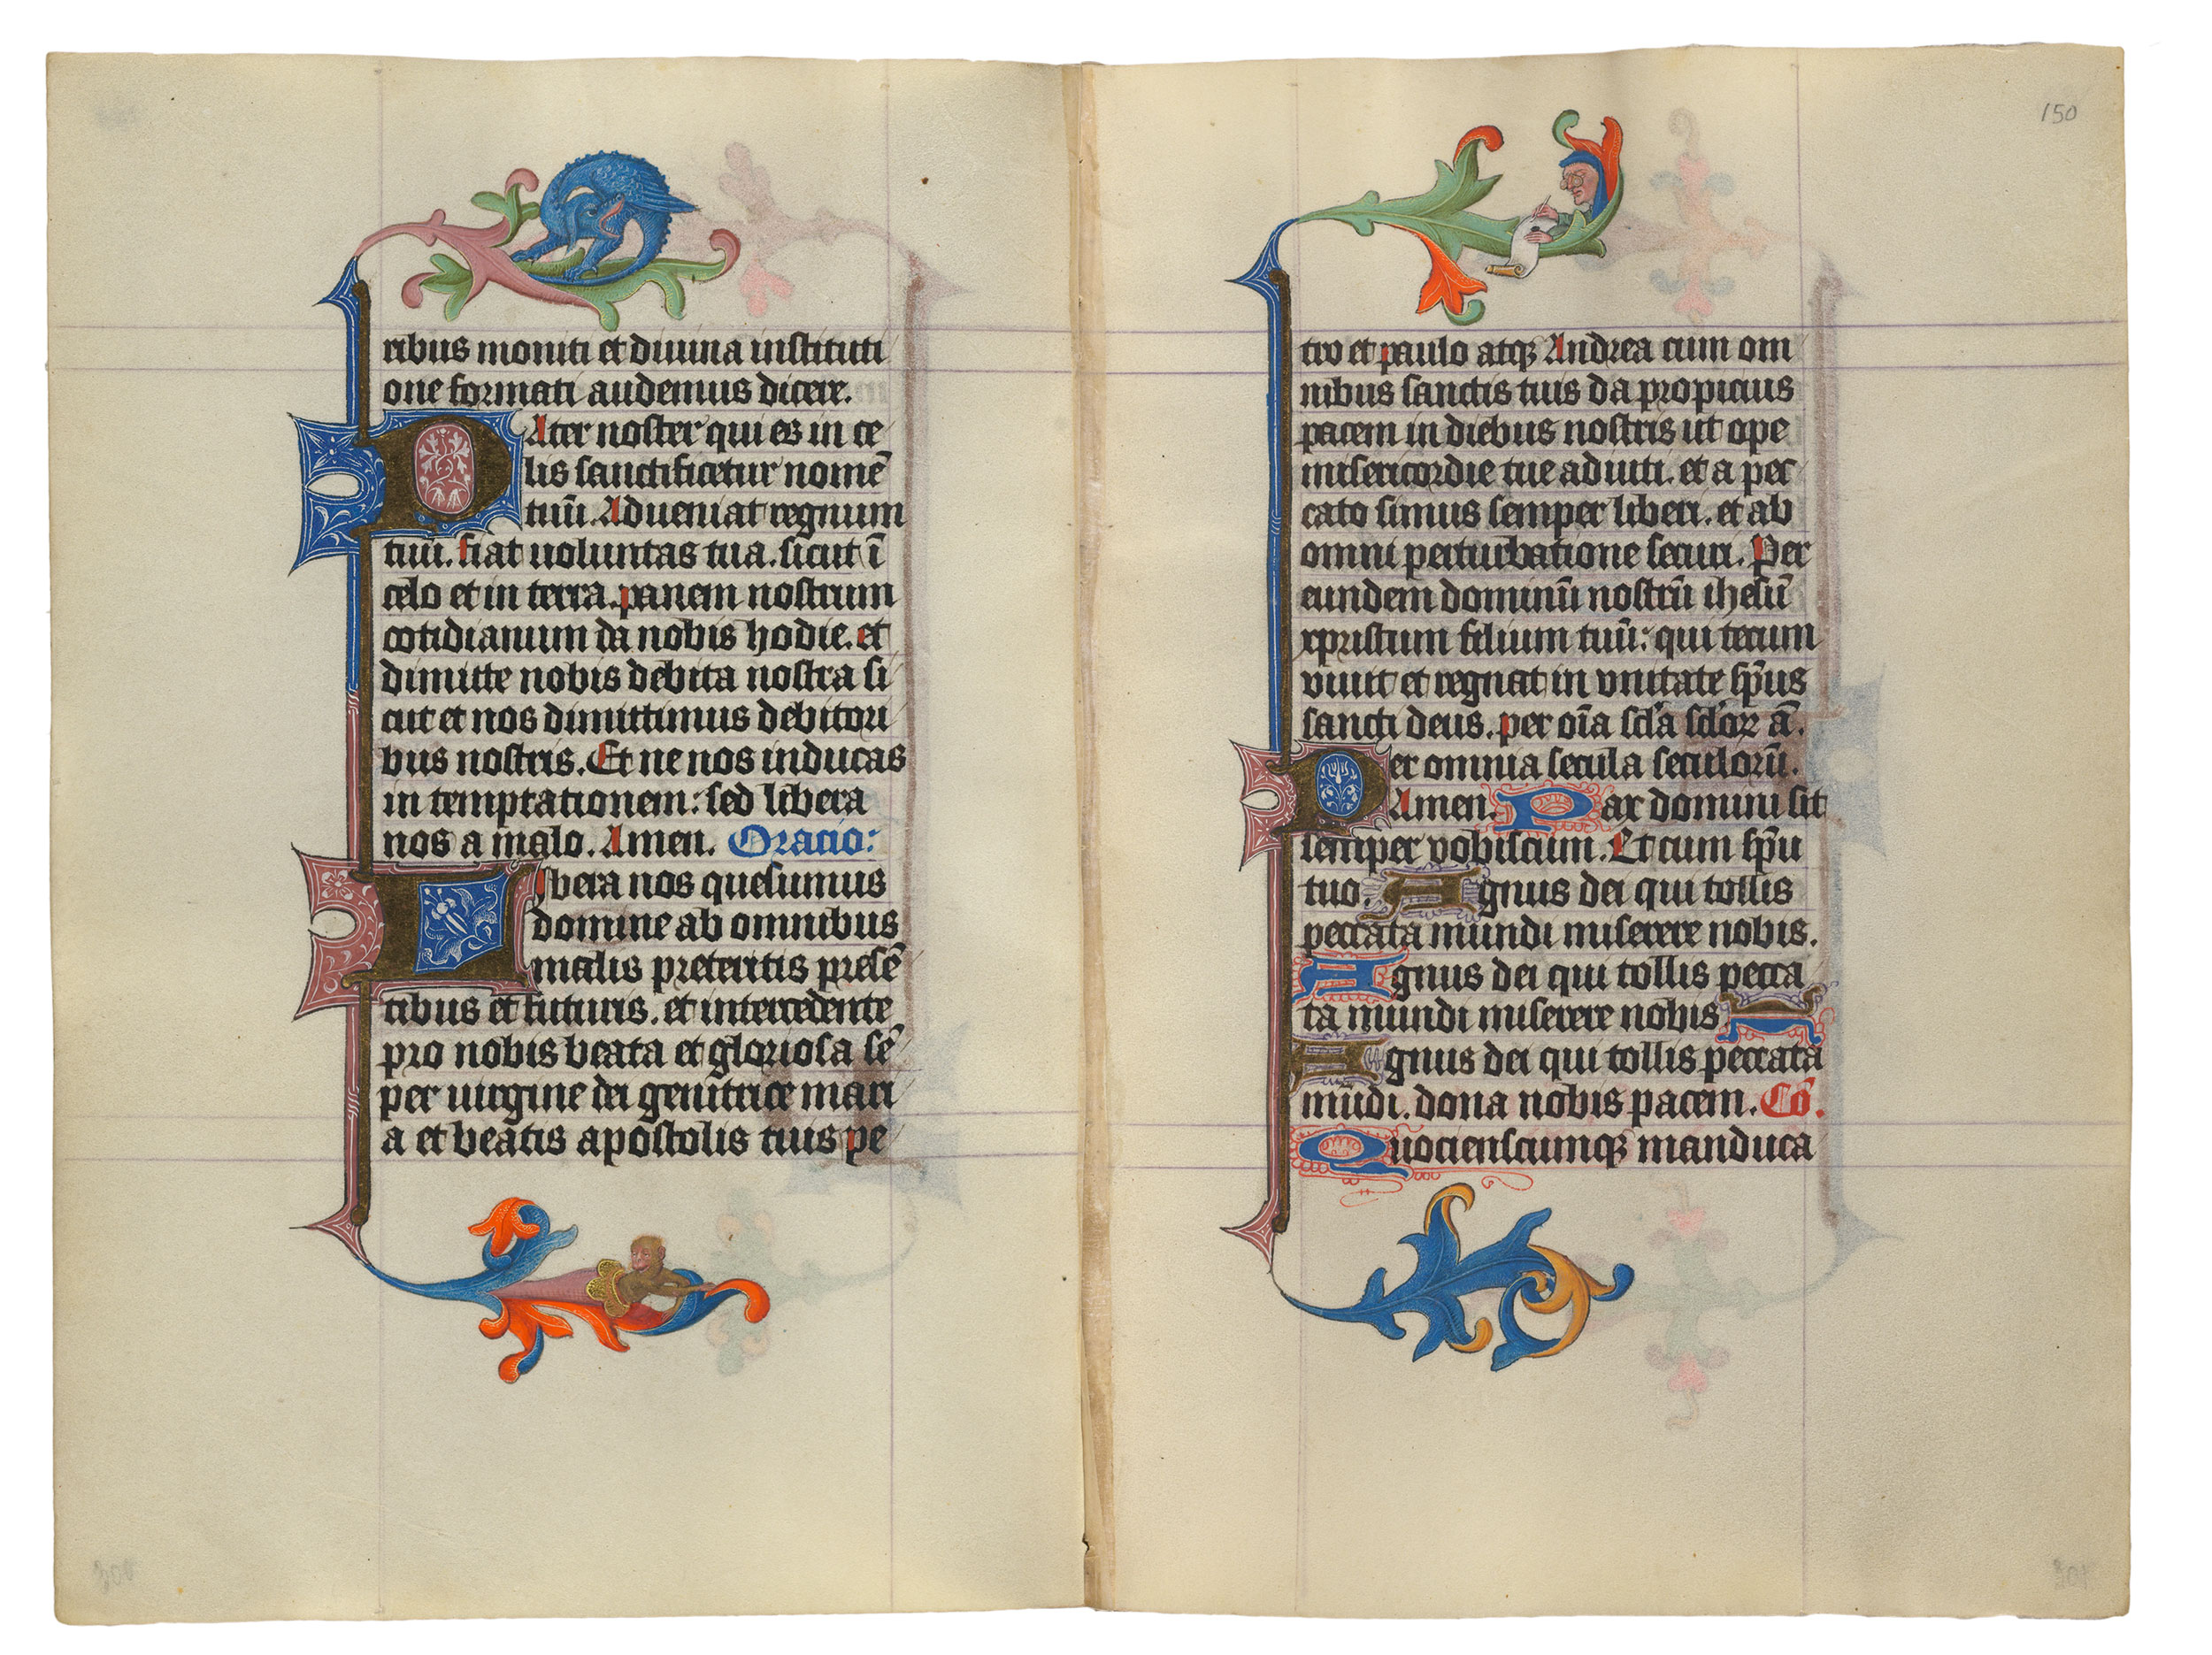 ribus moniti et diuina instituti
one formati audemus dicere.
PAter noster qui es in ce
lis sanctificetur nomē
tuū. Adueniat regnum
tuū. fiat uoluntas tua. sicut ī
celo et in terra. panem nostrum
cotidianum da nobis hodie. et
dimitte nobis debita nostra si
cut et nos dimittimus debitori
bus nostris. Et ne nos inducas
in temptationem: sed libera
nos a malo. Amen. Oracio:
LIbera nos quesumus
domine ab omnibus
malis preteritis presē
tibus et futuris. et intercedente
pro nobis beata et gloriosa sē
per uirgine dei genitrice mari
a et beatis apostolis tuis pe
150
tro et paulo atqꝫ Andrea cum om
nibus sanctis tuis da propicius
pacem in diebus nostris ut ope
misericordie tue adiuti. et a pec
cato simus semper liberi. et ab
omni perturbatione securi. Per
eundem dominū nostrū ihesū
xpristum filium tuū: qui tecum
viuit et regnat in vnitate sp̄us
sancti deus. per oīa scl'a scl'oꝝ ā.
Per omnia secula seculorū.
Amen. Pax domini sit
semper vobiscum. Et cum sp̄u
tuo. Agnus dei qui tollis
peccata mundi miserere nobis.
Agnus dei qui tollis pecca
ta mundi miserere nobis.
Agnus dei qui tollis peccata
mūdi. dona nobis pacem. Cō.
Quocienscumqꝫ manduca